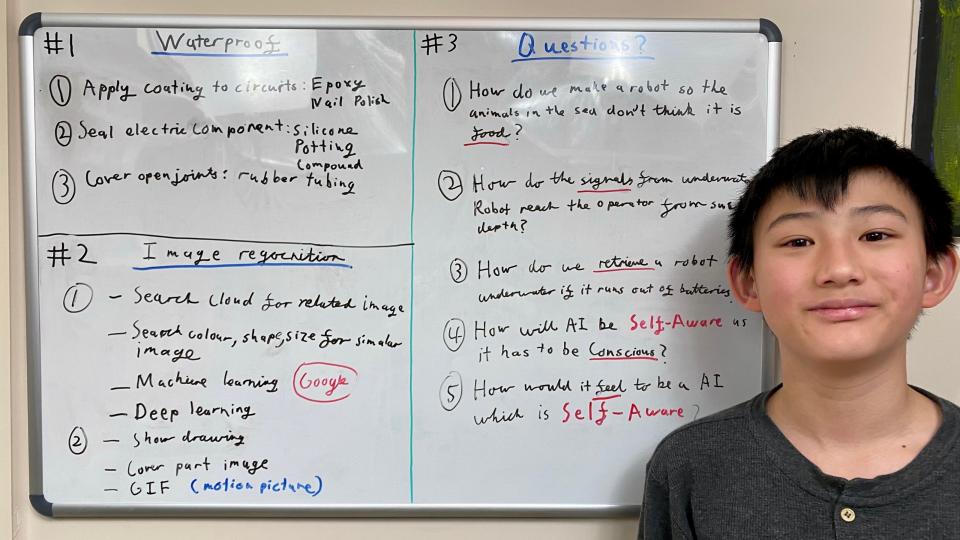 #1 Waterproof
① Apply coating to circuits: Epoxy
Nail Polish
② Seal electric component: Silicone
Potting
Compound
③ Cover open joints: rubber tubing
#2 Image regocnition
① - Search cloud for related image
- Search colour, shape, size for simalar
image
- Machine learning Google
- Deep learning
② - Show drawing
- Cover part image
- GIF (motion picture)
#3 Questions?
① How do we make a robot so the
animals in the sea don't think it is
food?
② How do the signals from
Robot reach the operator from
depth?
③ How do we retrieve a robot
underwater if it runs out of batteries
④ How will AI be Self-Aware as
it has to be Conscious?
⑤ How would it feel to be a AI
which is Self-Aware?